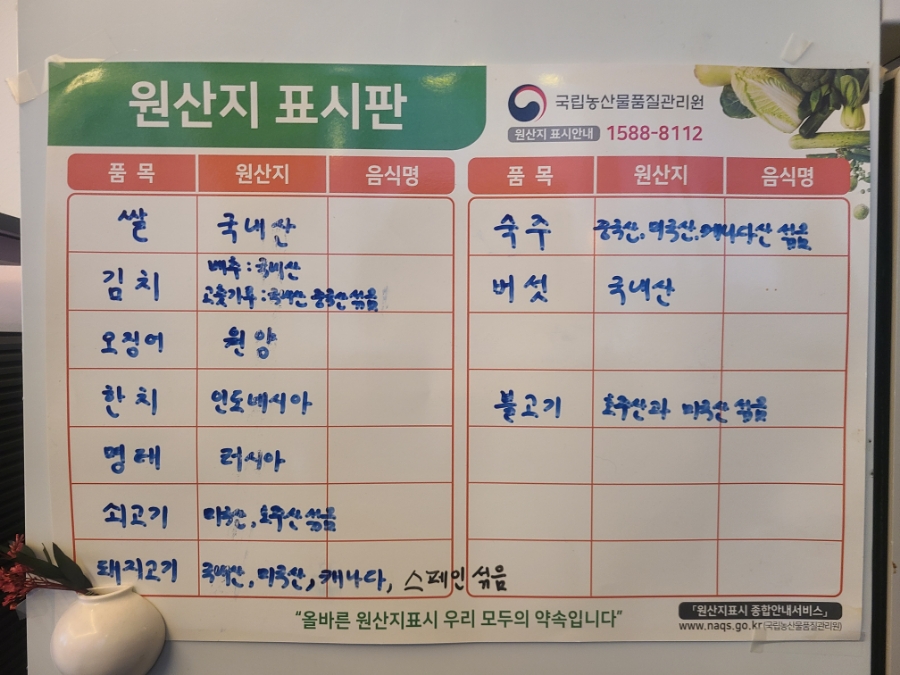 원산지 표시판
국립농산물품질관리원
원산지 표시안내 1588-8112
품 목 원산지 음식명
쌀 국내산
김치 배추 : 국내산
고춧가루 : 국내산 중국산 섞음
오징어 원양
한치 인도네시아
명태 러시아
쇠고기 미국산, 호주산 섞음
돼지고기 국내산, 미국산, 캐나다, 스페인 섞음
품 목 원산지 음식명
숙주 중국산, 미국산, 캐나다산 섞음
버섯 국내산
불고기 호주산과 미국산 섞음
"올바른 원산지표시 우리 모두의 약속입니다"
「원산지표시 종합안내서비스」
www.naqs.go.kr(국립농산물품질관리원)